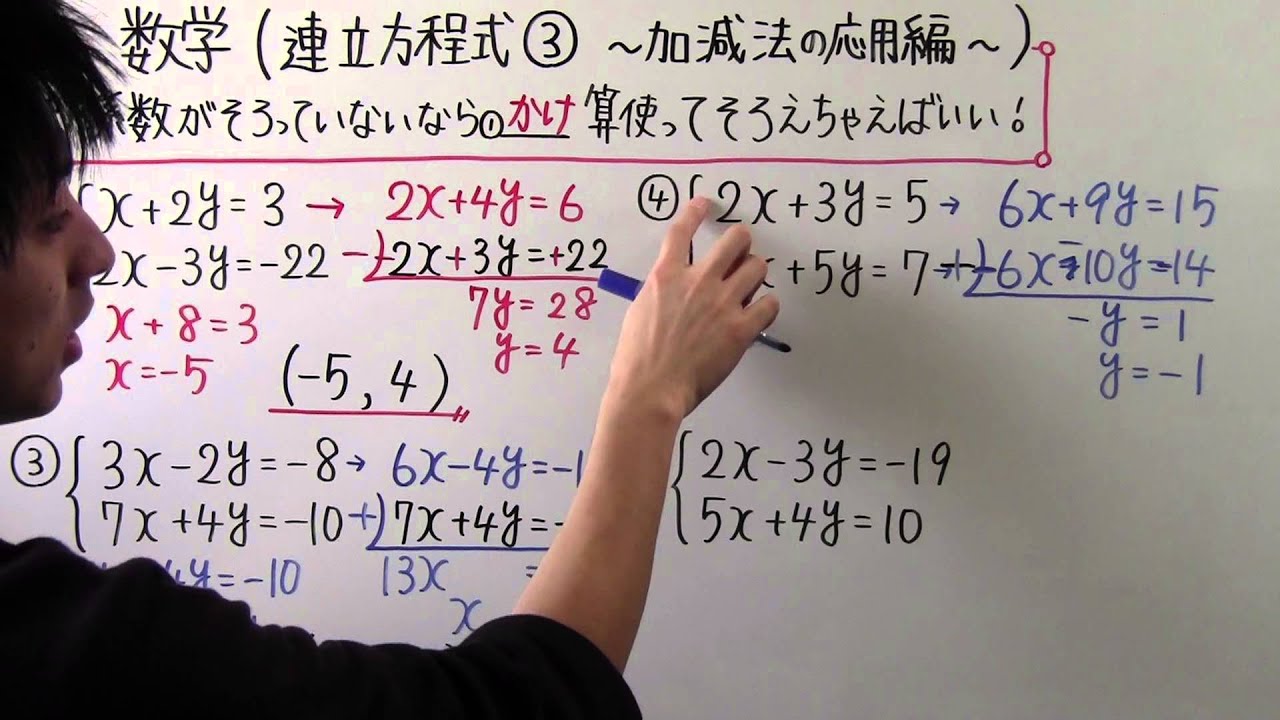 数学(連立方程式③ ～加減法の応用編～)
係数がそろっていないなら①かけ算使ってそろえちゃえばいい!
x+2y=3 → 2x+4y=6
2x-3y=-22 -)-2x+3y=+22
7y=28
x+8=3
y=4
x=-5
(-5,4)
④ 2x+3y=5 → 6x+9y=15
x+5y=7 → +)-6x-10y=-14
-y=1
y=-1
③ 3x-2y=-8 → 6x-4y=-1
7x+4y=-10 +) 7x+4y=-
4y=-10
13x =
x
2x-3y=-19
5x+4y=10